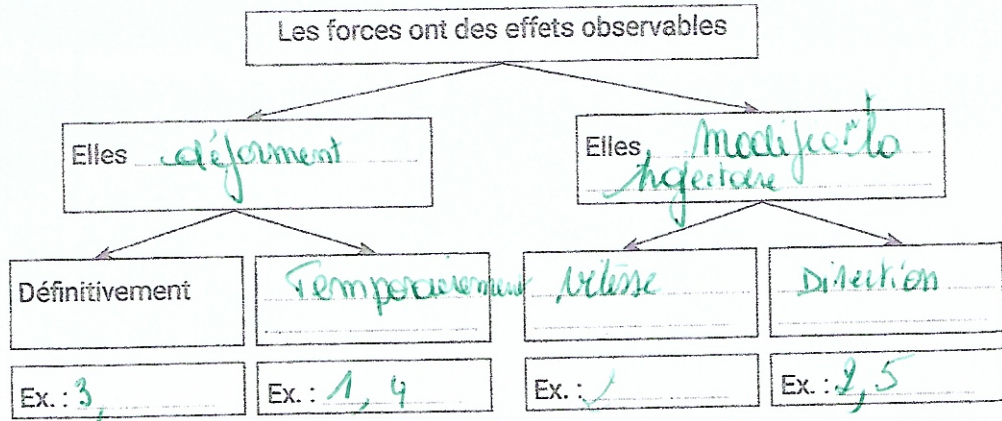 Les forces ont des effets observables
Elles déforment
Elles modifient la
trajectoire
Définitivement
Temporairement
Vitesse
Direction
Ex. : 3,
Ex. : 1, 4
Ex. :
Ex. : 2, 5